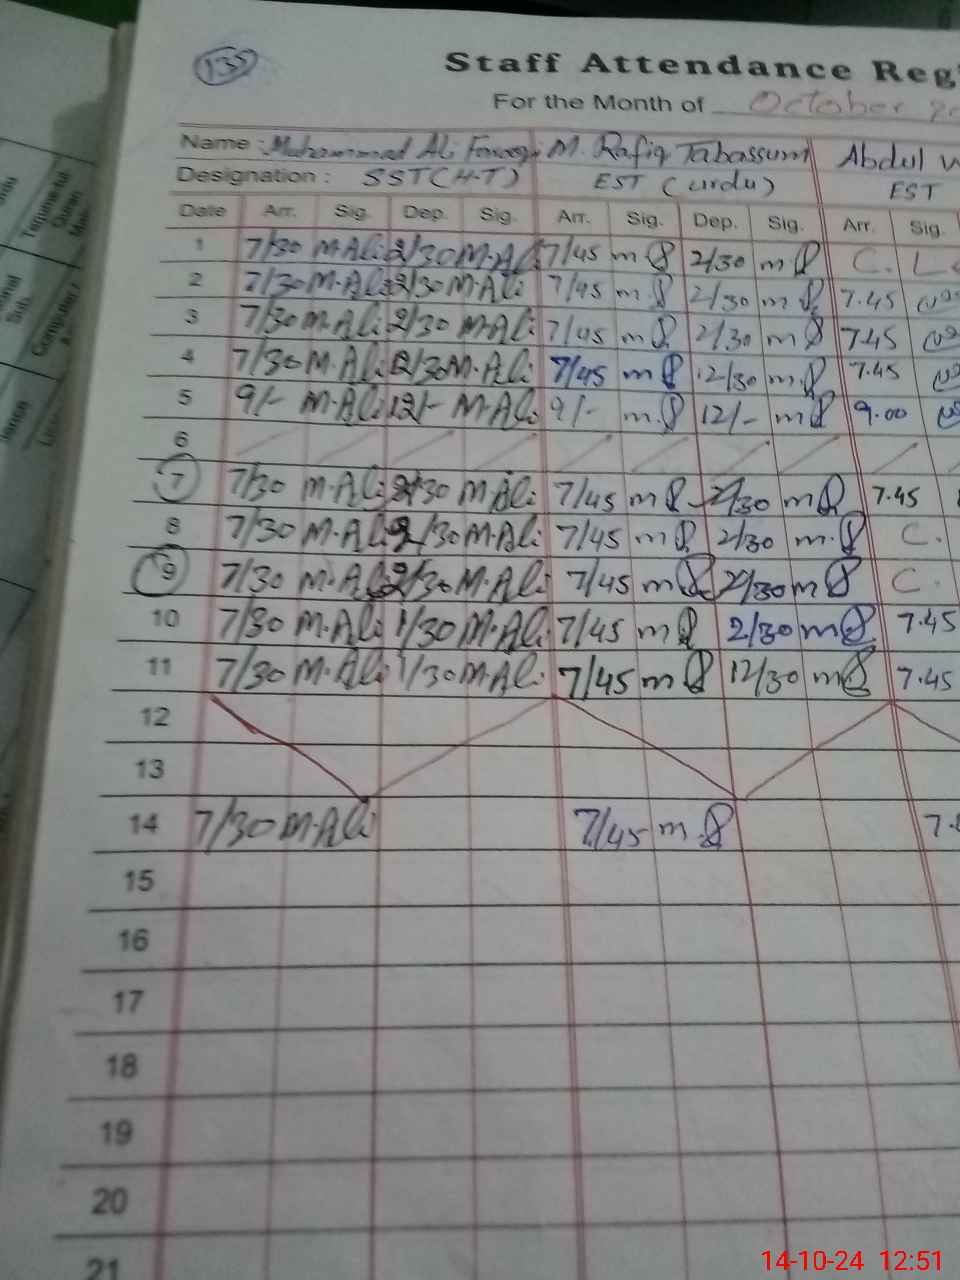 135
Staff Attendance Reg
For the Month of October 20
Name : Muhammad Ali Farooqi M. Rafiq Tabassum Abdul W
Designation : SST (H-T) EST (urdu) EST
Date Arr. Sig. Dep. Sig. Arr. Sig. Dep. Sig. Arr. Sig.
1 7/30 M.Ali 2/30 M.Ali 7/45 m 2/30 m C. L
2 7/30 M.Ali 2/30 M.Ali 7/45 m 2/30 m 7.45
3 7/30 M.Ali 2/30 M.Ali 7/45 m 2/30 m 7.45
4 7/30 M.Ali 12/30 M.Ali 7/45 m 12/30 m 7.45
5 9/- M.Ali 12/- M.Ali 9/- m 12/- m 9.00
6
7 7/30 M.Ali 2/30 M.Ali 7/45 m 2/30 m 7.45
8 7/30 M.Ali 2/30 M.Ali 7/45 m 2/30 m C.
9 7/30 M.Ali 2/30 M.Ali 7/45 m 2/30 m C.
10 7/30 M.Ali 1/30 M.Ali 7/45 m 2/30 m 7.45
11 7/30 M.Ali 1/30 M.Ali 7/45 m 12/30 m 7.45
12
13
14 7/30 M.Ali 7/45 m 7.
15
16
17
18
19
20
21
14-10-24 12:51